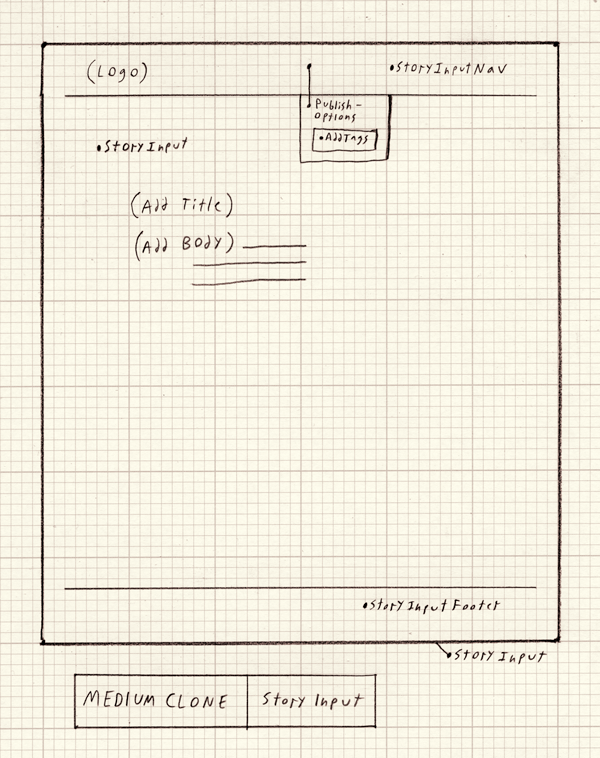 (Logo)
•StoryInputNav
•Publish-
Options
•AddTags
•StoryInput
(Add Title)
(Add BODY)
•StoryInputFooter
•StoryInput
MEDIUM CLONE
Story Input